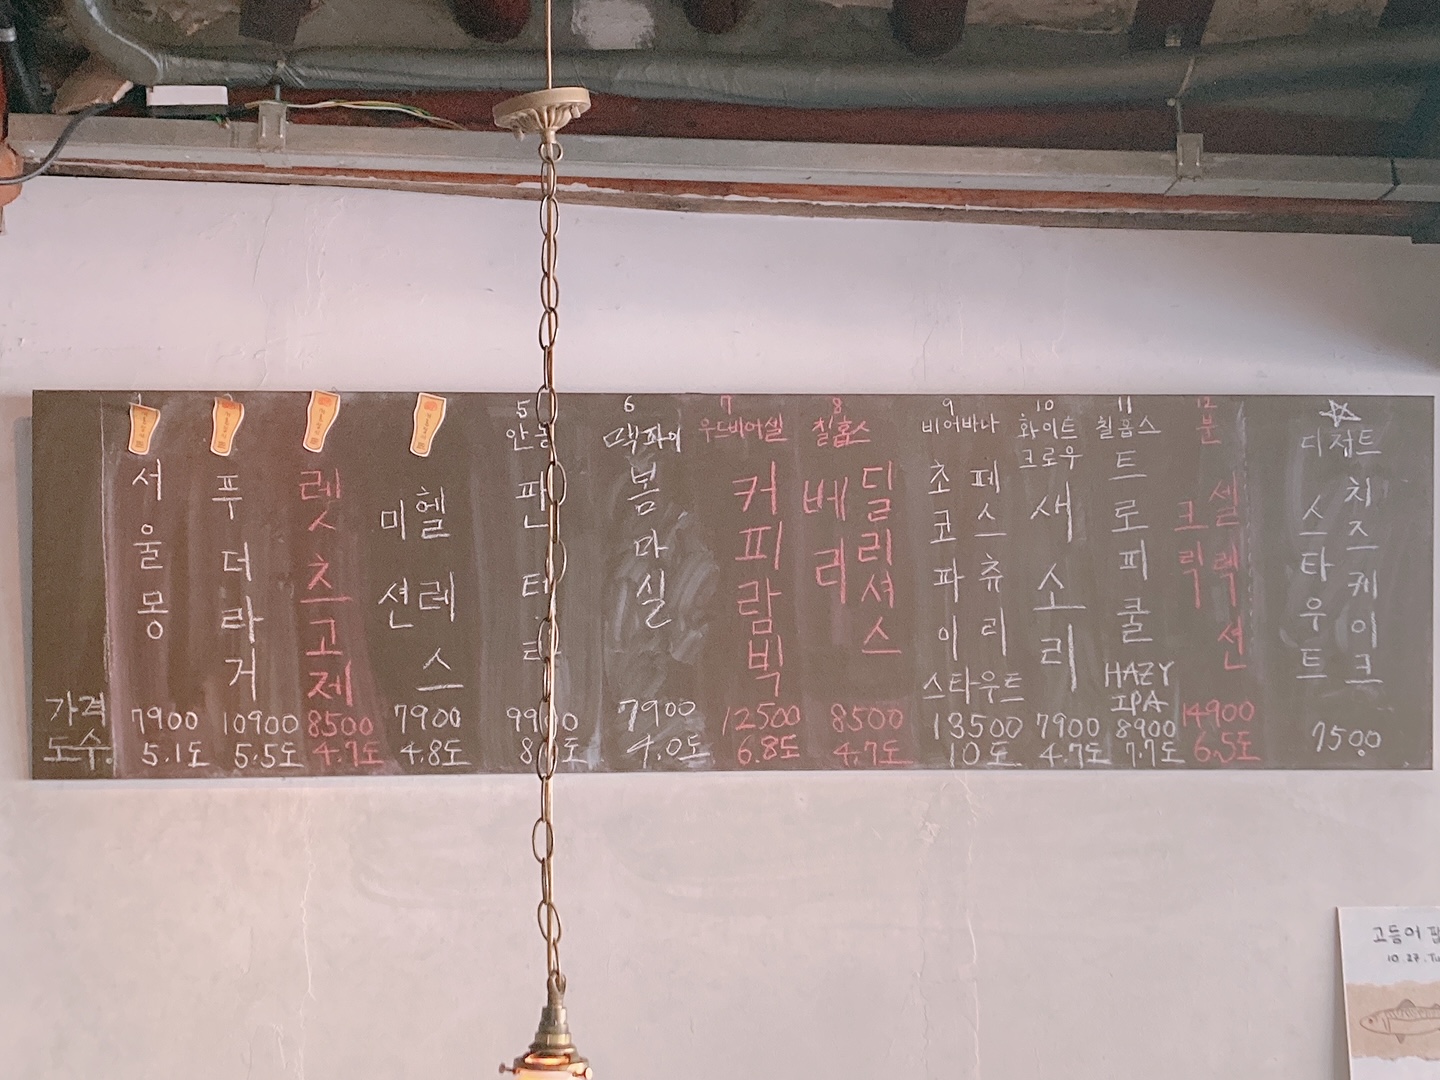 가격
도수
서울몽
7900
5.1도
푸더라거
10900
5.5도
렛츠고제
8500
4.7도
헬레스
미션
7900
4.8도
5
판테
6
맥파이
봄마실
7900
4.0도
7
우드비어셀
커피람빅
12500
6.8도
8
칠홉스
딜리셔스
베리
8500
4.7도
9
비어바나
페스츄리
초코파이
스타우트
13500
10도
10
화이트
크로우
새소리
7900
4.7도
11
칠홉스
트로피쿨
HAZY
IPA
8900
7.7도
12
분
셀렉션
크릭
14900
6.5도
디저트
치즈케이크
스타우트
7500
고등어
10.27.Tu